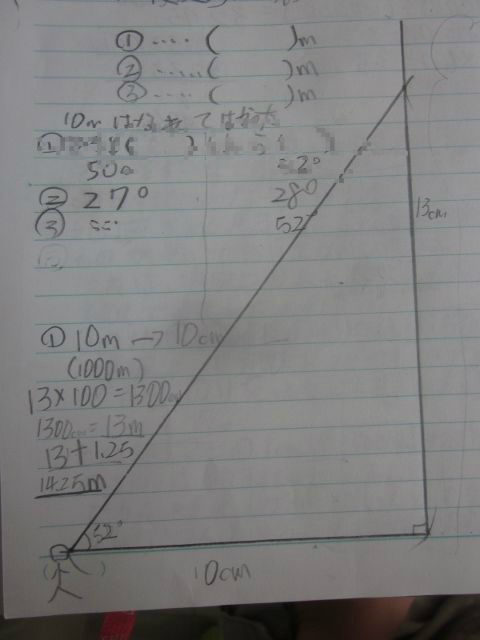 ① ‥‥ (　　)m
② ‥‥‥ (　　)m
③ ‥‥ (　　)m
10m はなれてはかった
①
50°
② 27° 28°
③ 52°
13cm
① 10m → 10cm
(1000m)
13×100=1300cm
1300cm=13m
13+1.25
14.25m
52°
10cm